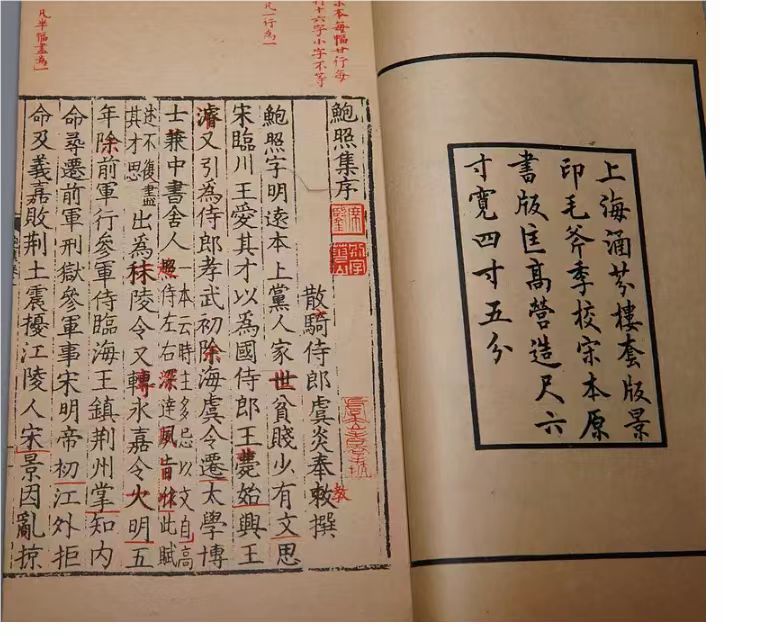 上海涵芬樓套版景
印毛斧季校宋本原
書版匡高營造尺六
寸寬四寸五分
宋本每幅廿行每
行十六字小字不等
凡一行為一
凡半幅盡為一
鮑照集序
散騎侍郎虞炎奉敕撰
教
鮑照字明遠本上黨人家世貧賤少有文思
宋臨川王愛其才以為國侍郎王薨始興王
濬又引為侍郎孝武初除海虞令遷太學博
士兼中書舍人
一本云時主多忌以文自高
照侍左右深達風旨以此賦
述不復盡
其才思
出為秣陵令又轉永嘉令大明五
年除前軍行參軍侍臨海王鎮荊州掌知內
命尋遷前軍刑獄參軍事宋明帝初江外拒
命及義嘉敗荊土震擾江陵人宋景因亂掠